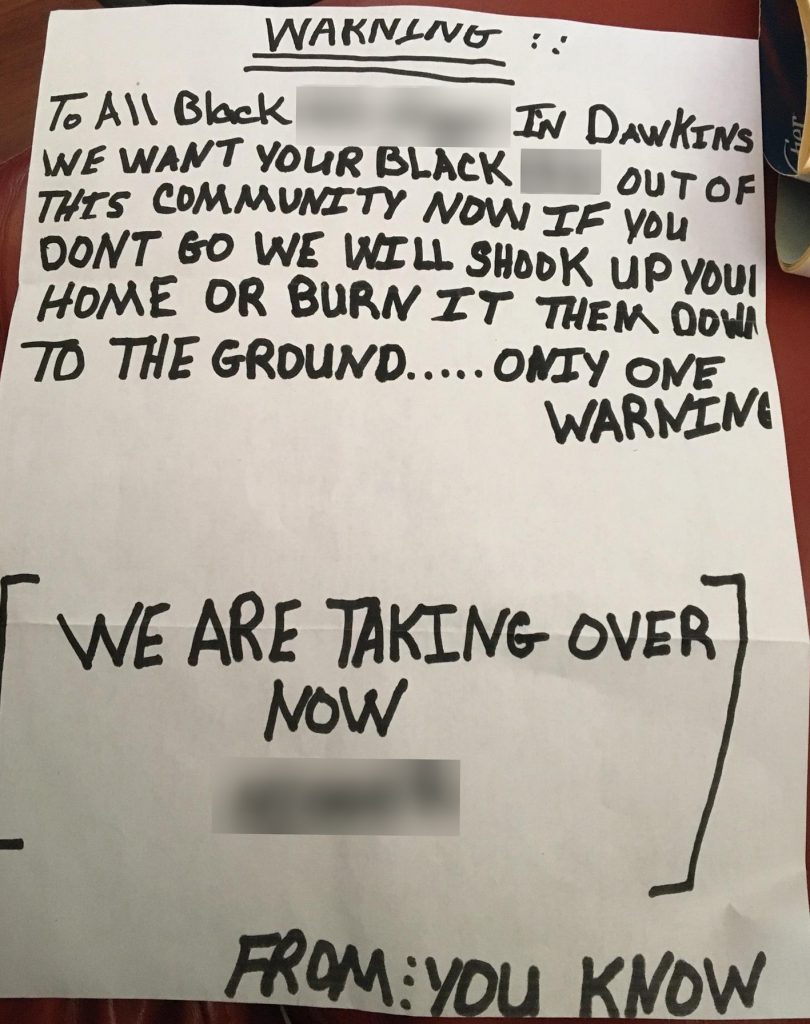 WARNING ::
To All Black IN DAWKINS
WE WANT YOUR BLACK OUT OF
THIS COMMUNITY NOW IF YOU
DONT GO WE WILL SHOOK UP YOUR
HOME OR BURN IT THEM DOWN
TO THE GROUND..... ONlY ONE
WARNING
[WE ARE TAKING OVER
NOW]
FROM: YOU KNOW